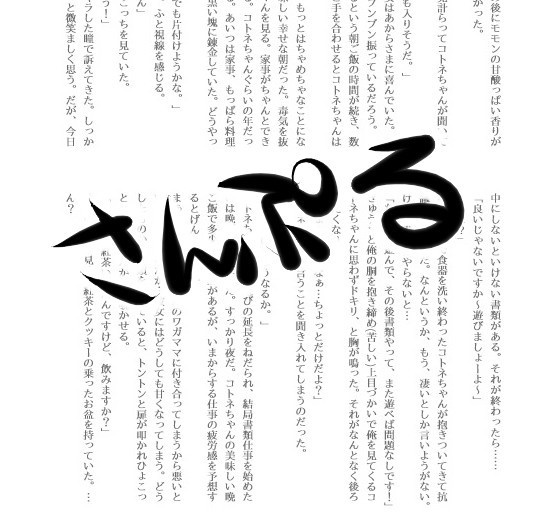 後にモモンの甘酸っぱい香りが
かった。
計らってコトネちゃんが聞い
も入りそうだ。」
はあからさまに喜んでいた。
ブンブン振っているだろう。
という朝ご飯の時間が続き、数
手を合わせるとコトネちゃんは
もっとはちゃめちゃなことにな
しい幸せな朝だった。毒気を抜
んを見る。家事がちゃんとでき
、コトネちゃんぐらいの年だっ
。あいつは家事、もっぱら料理
黒い塊に錬金していた。どうやっ
でも片付けようかな。」
、ふと視線を感じる。
こっちを見ていた。
う！」
ラした瞳で訴えてきた。しっか
と微笑ましく思う。だが、今日
さんぷる
中にしないといけない書類がある。それが終わったら……
「良いじゃないですか～遊びましょーよ～」
食器を洗い終わったコトネちゃんが抱きついてきて抗
だ。なんというか、もう、凄いとしか言いようがない。
やらないと…
んで、その後書類やって、また遊べば問題なしです！」
と俺の胴を抱き締め(苦しい)上目づかいで俺を見てくるコ
ネちゃんに思わずドキリ、と胸が鳴った。それがなんとなく後ろ
くな
ぁ…ちょっとだけだよ？」
言うことを聞き入れてしまうのだった。
なるか。」
びの延長をねだられ、結局書類仕事を始めた
は晩
た。すっかり夜だ。コトネちゃんの美味しい晩
ご飯で多
があるが、いまからする仕事の疲労感を予想す
るとげん
のワガママに付き合ってしまうから悪いと
にはどうしても甘くなってしまう。どう
ていると、トントンと扉が叩かれひょこっ
かせる。
紅茶
んですけど、飲みますか？」
紅茶とクッキーの乗ったお盆を持っていた。…
ん？